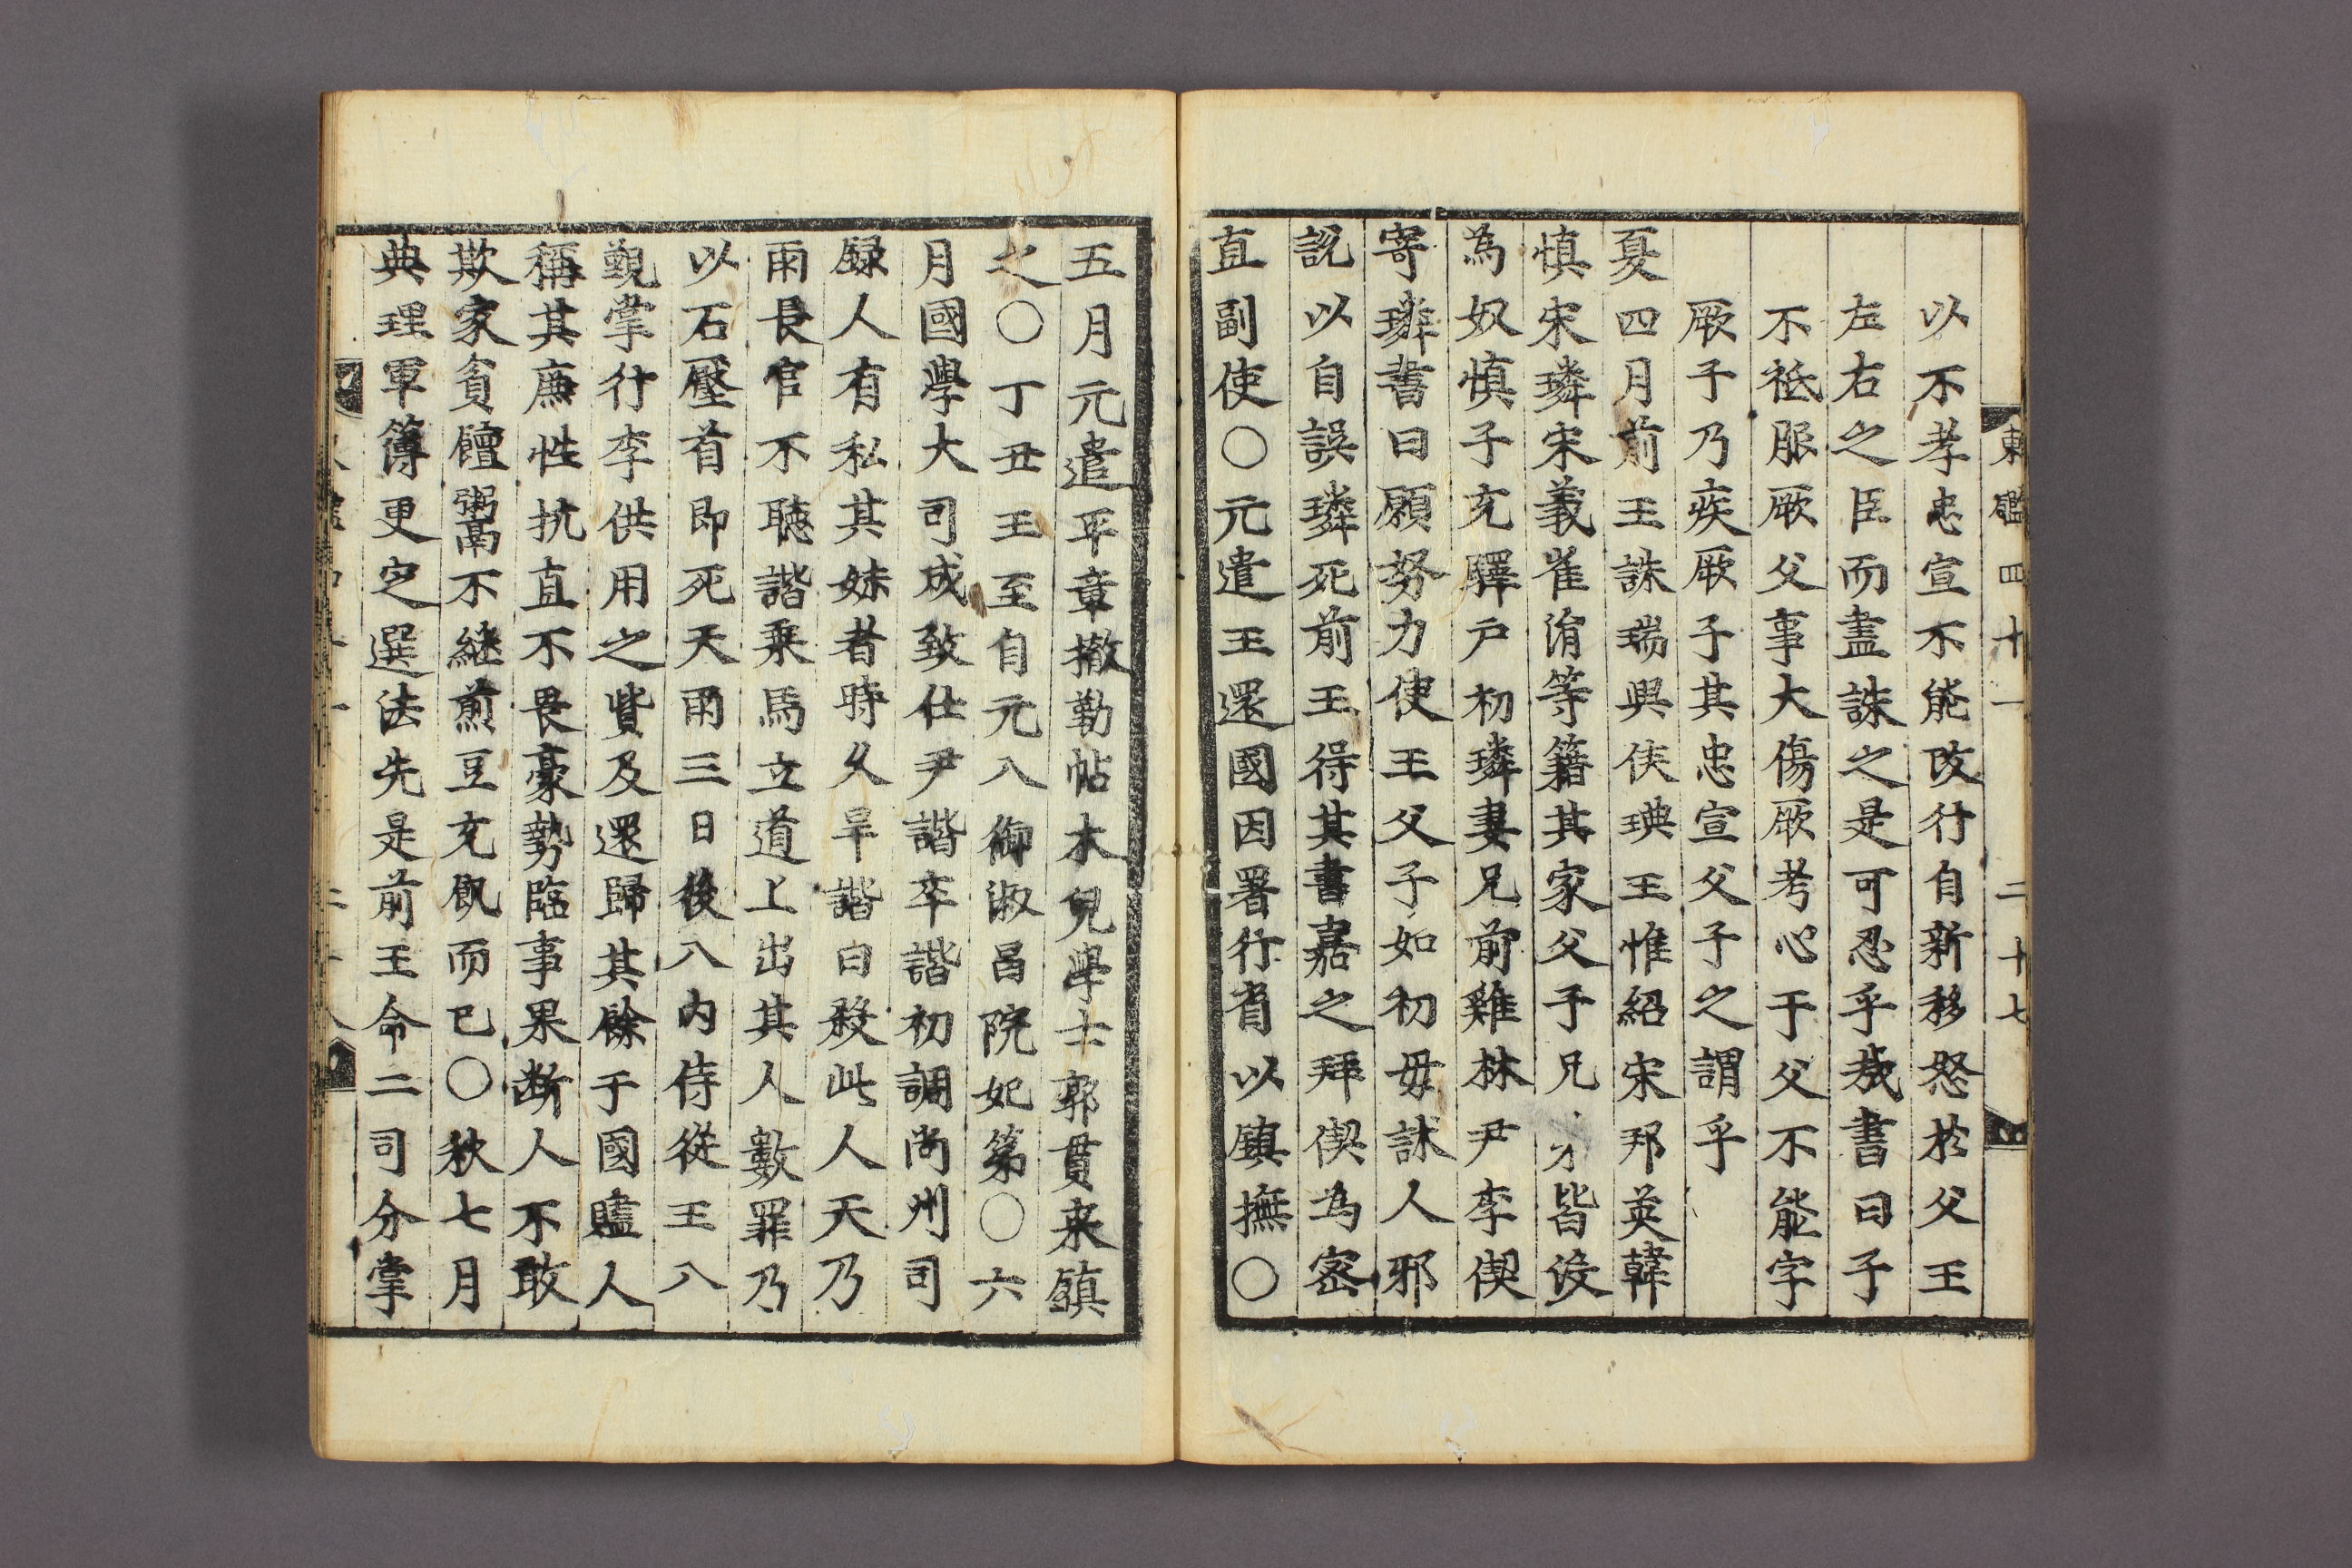 東鑑四十一 二十七
以不孝忠宣不能改行自新移怒於父王
左右之臣而盡誅之是可忍乎哉書曰子
不祗服厥父事大傷厥考心于父不能字
厥子乃疾厥子其忠宣父子之謂乎
夏四月前王誅瑞興侯琠王惟紹宋邦英韓
愼宋璘宋義崔涓等籍其家父子兄皆沒
為奴愼子充驛戶初璘妻兄前雞林尹李偰
寄璘書曰願努力使王父子如初毋訹人邪
說以自誤璘死前王得其書嘉之拜偰為密
直副使○元遣王還國因署行省以鎮撫○
五月元遣平章撒勒帖木兒學士郭貫来鎮
之○丁丑王至自元入御淑昌院妃第○六
月國學大司成致仕尹諧卒諧初調尚州司
録人有私其妹者時久旱諧曰殺此人天乃
雨長官不聽諧乗馬立道上出其人數罪乃
以石壓首即死天雨三日後入内侍從王入
觐掌行李供用之貲及還歸其餘于國贐人
稱其廉性抗直不畏豪勢臨事果断人不敢
欺家貧饘粥不継煎豆充飢而已○秋七月
典理軍簿更定選法先是前王命二司分掌